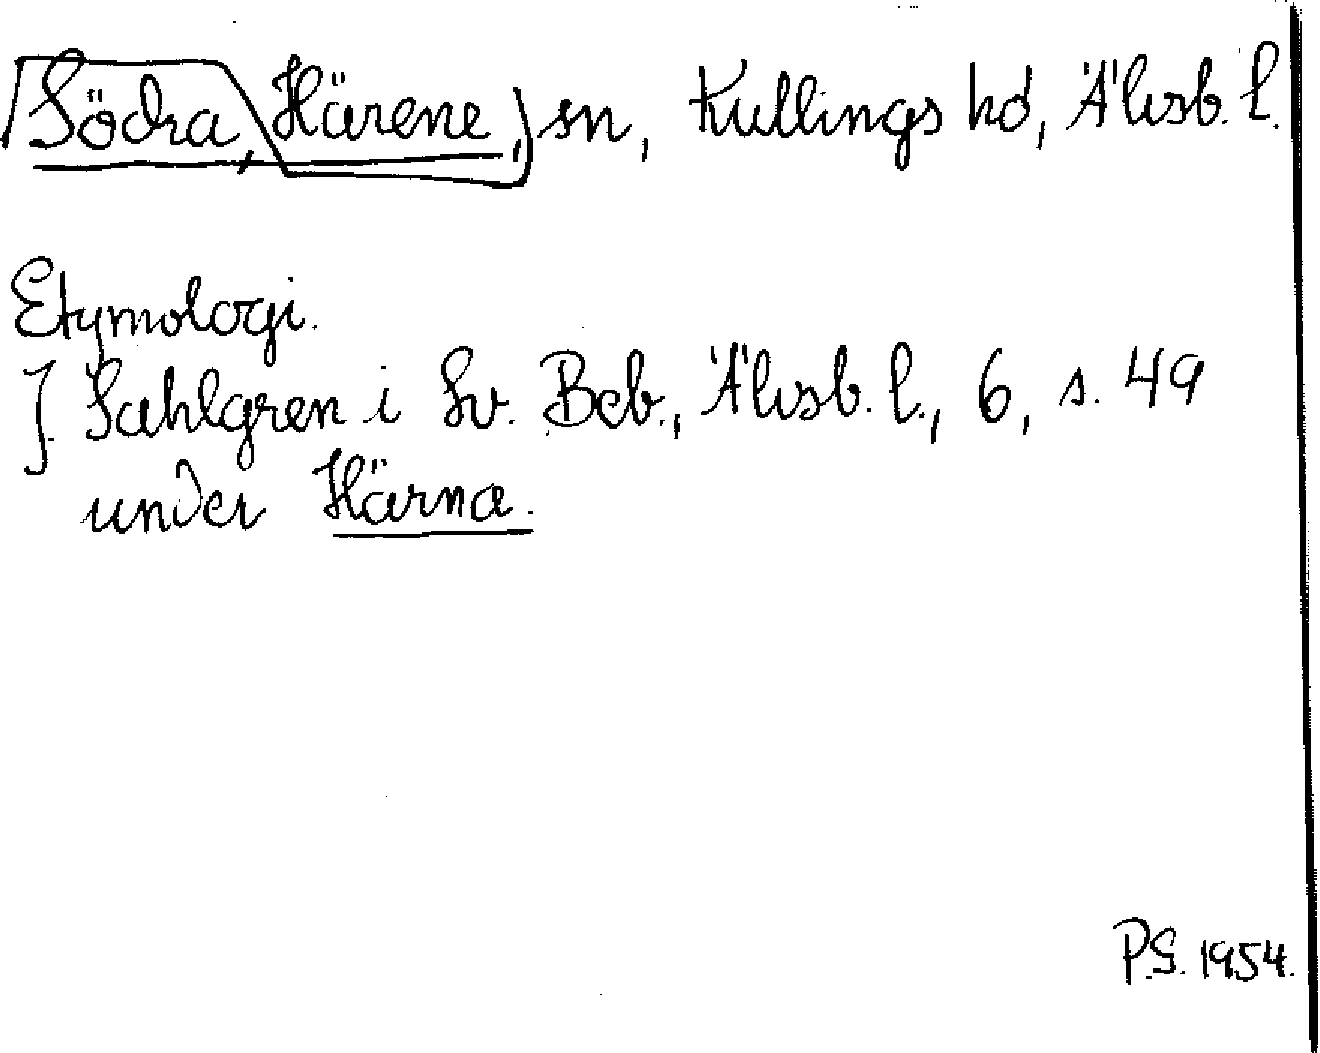 Södra, Härene, sn, Kullings hd, Älvsb. l.
Etymologi.
J. Sahlgren i Sv. Beb., Älvsb. l., 6, s. 49
under Härna.
P.S. 1954.